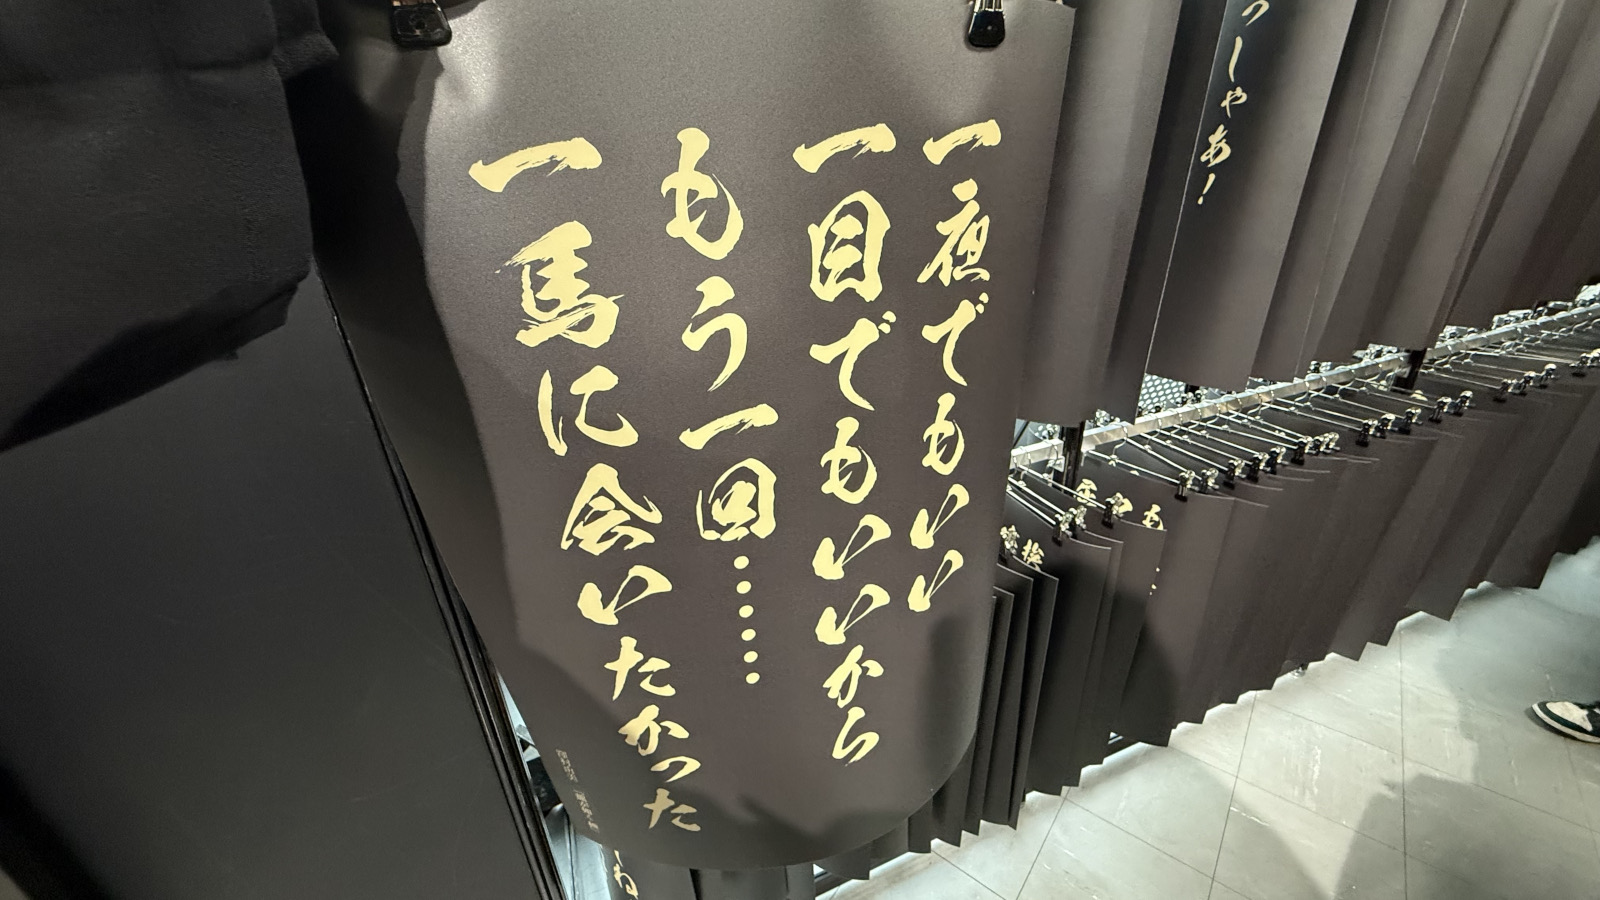 一夜でもいい
一目でもいいから
もう一回……
一馬に会いたかった
っしゃあ!